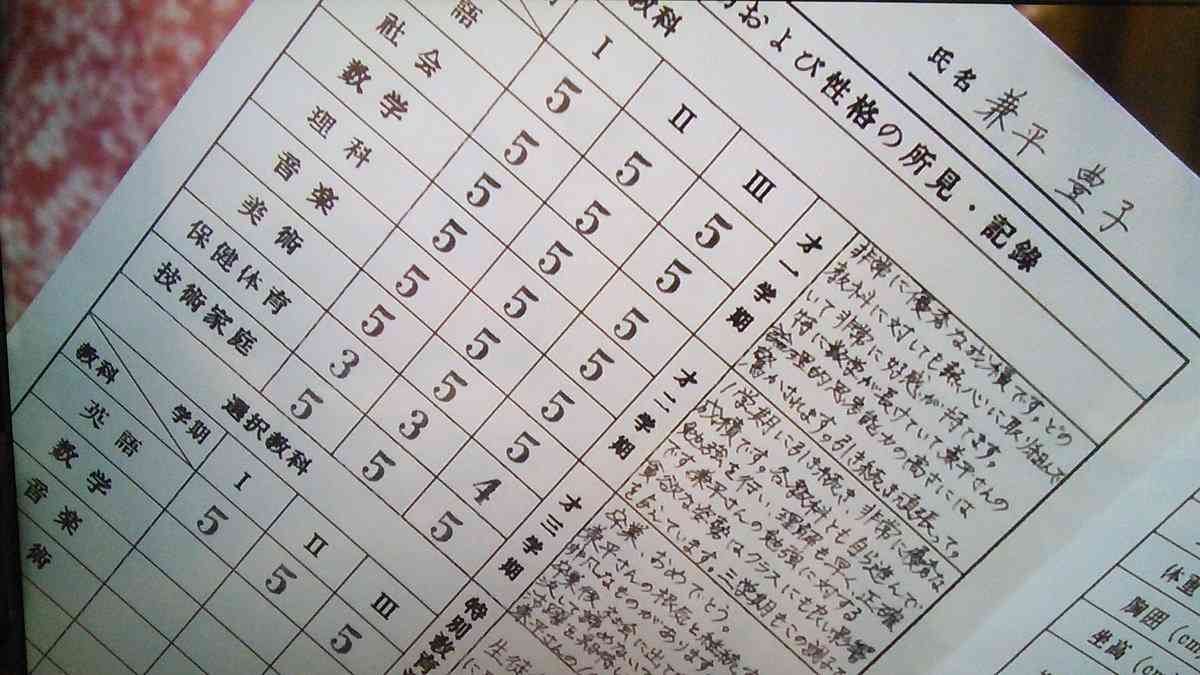 氏名 兼平 豊子
および性格の所見・記録
教科 I II III
語 5 5 5
社会 5 5 5
数学 5 5 5
理科 5 5 5
音楽 5 5 5
美術 5 5 5
保健体育 3 3 4
技術家庭 5 5 5
選択教科
教科 学期 I II III
英語 5 5 5
数学
音楽
術
才一学期
非常に優秀な成績です。どの
教科に対しても熱心に取り組んで
いて非常に好感が持てます。
特に数学が長けていて兼平さんの
論理的思考能力の高さには
驚かされます。引き続き頑張って。
才二学期
1学期に引き続き、非常に優秀な
成績です。各教科とも自ら進んで
勉強を行い、理解も早く正確
です。兼平さんの勉強に対する
貪欲な姿勢はクラスにも良い影響
を与えています。三学期もこの調子で
才三学期
卒業、おめでとう。
兼平さんの根気と継続
非凡なものがあります
卒業後、社会に出て
兼平さんの
特別教育
生徒
体重
胸囲(cm)
坐高(cm